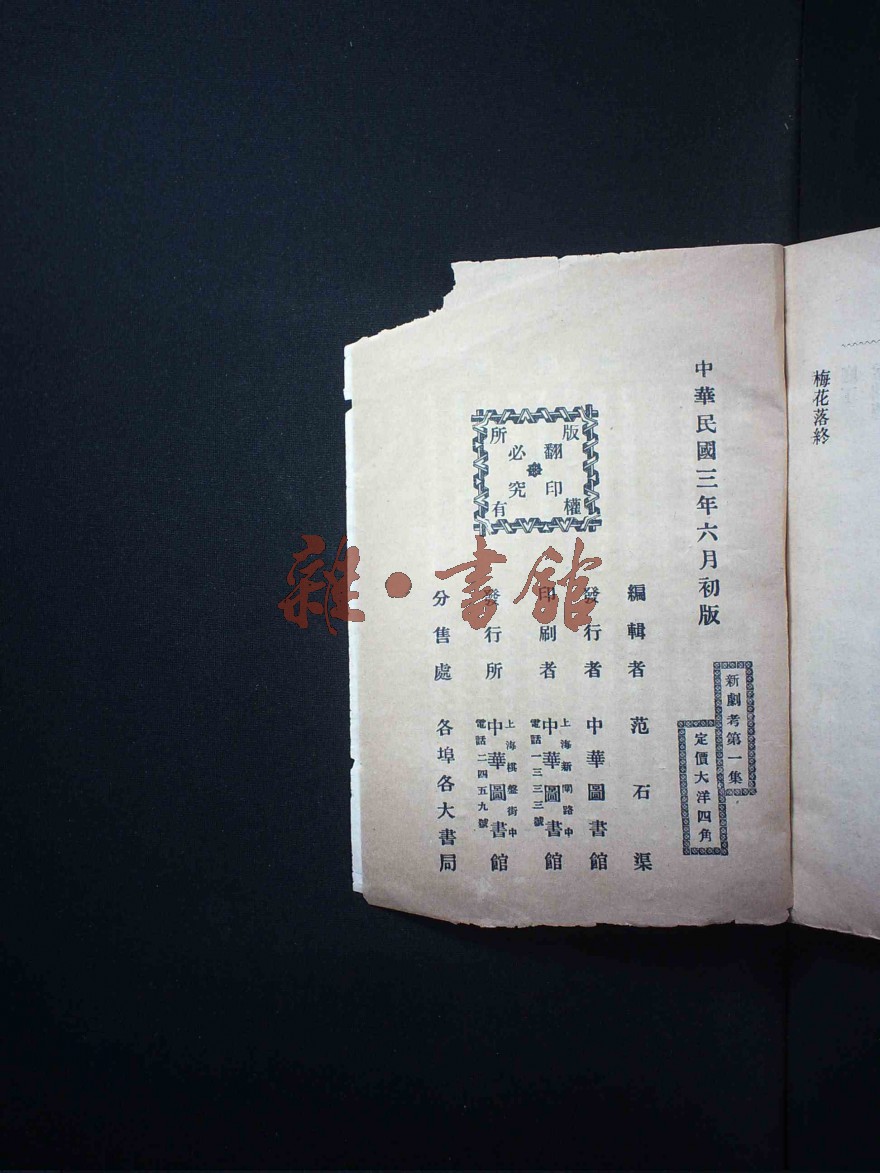 梅花落終
中華民國三年六月初版
新劇考第一集
定價大洋四角
版權所有
翻印必究
編輯者 范石渠
發行者 中華圖書館
印刷者 上海新閘路中 中華圖書館 電話一三三三號
發行所 上海棋盤街中 中華圖書館 電話二四五九號
分售處 各埠各大書局
雜·書館